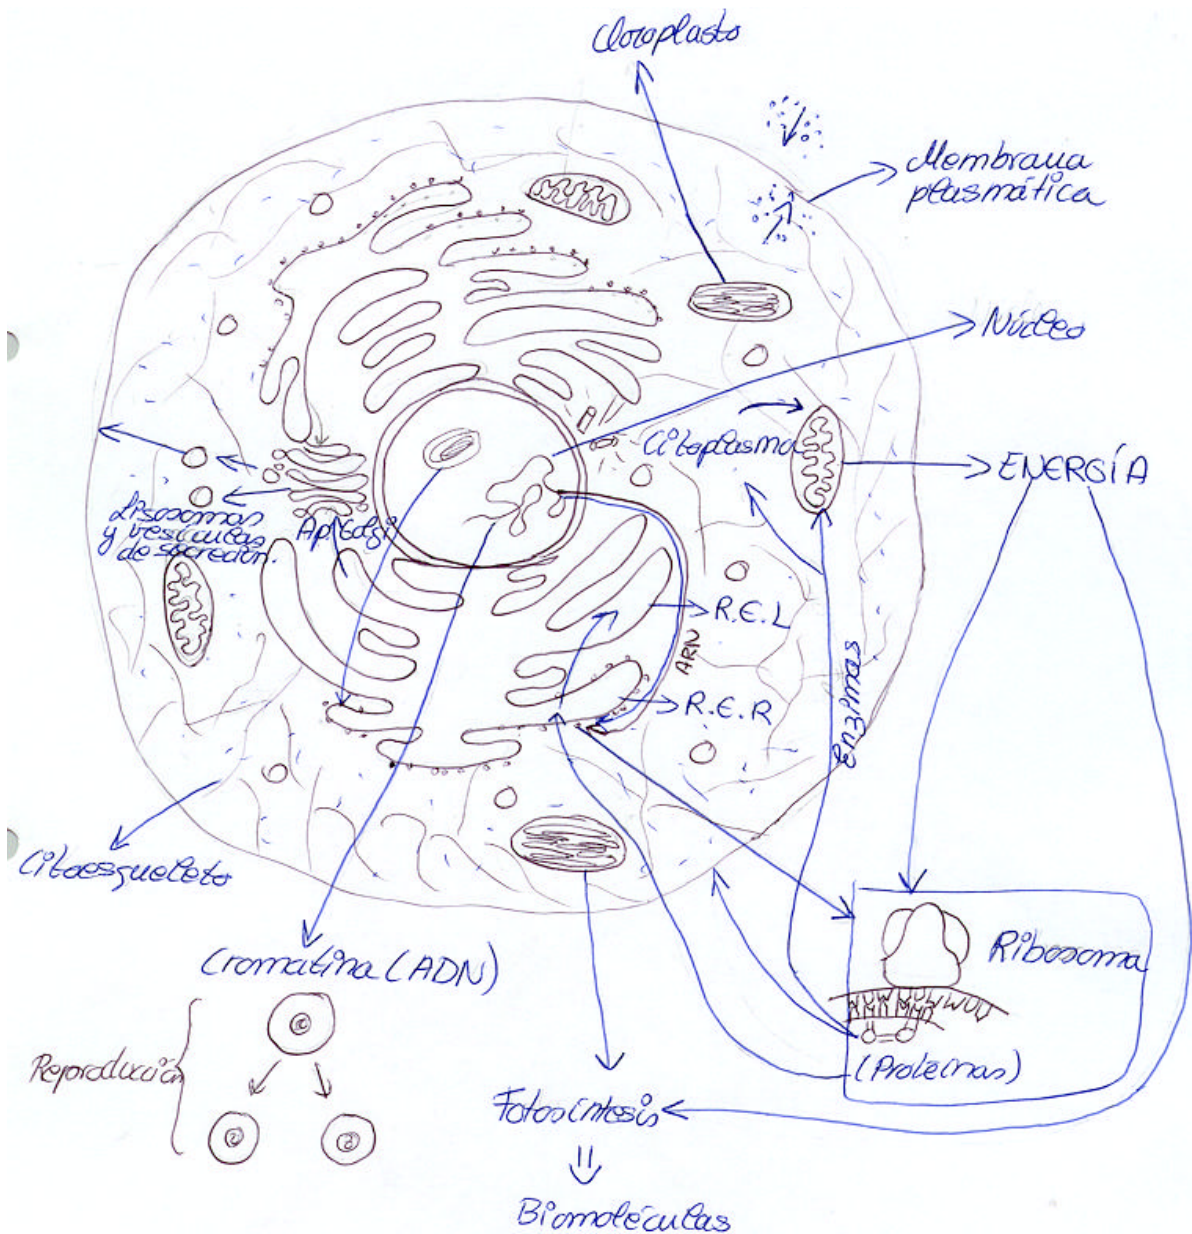 Cloroplasto
Membrana
plasmática
Núcleo
Citoplasma
ENERGÍA
Lisosomas
y vesículas
de secreción.
Ap. Golgi
R.E.L
ARN
R.E.R
Enzimas
Citoesqueleto
Cromatina (ADN)
Ribosoma
(Proteínas)
Reproducción
Fotosíntesis
Biomoléculas